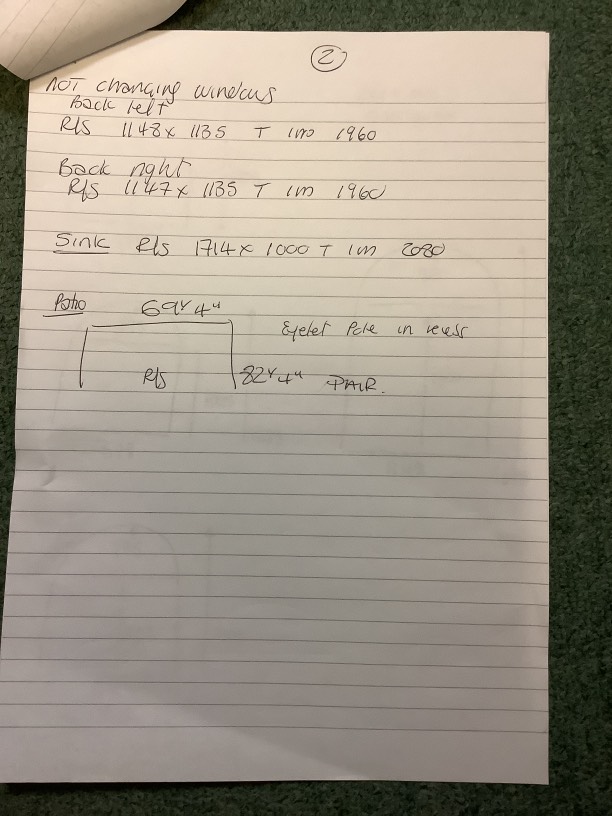 2
NOT changing windows
Back left
R/S 1148 x 1135 T 1m 1960
Back right
R/S 1147 x 1135 T 1m 1960
Sink R/S 1714 x 1000 T 1m 2080
Patio 69 4"
Eyelet Pole in recess
R/S 82 4" PAIR.